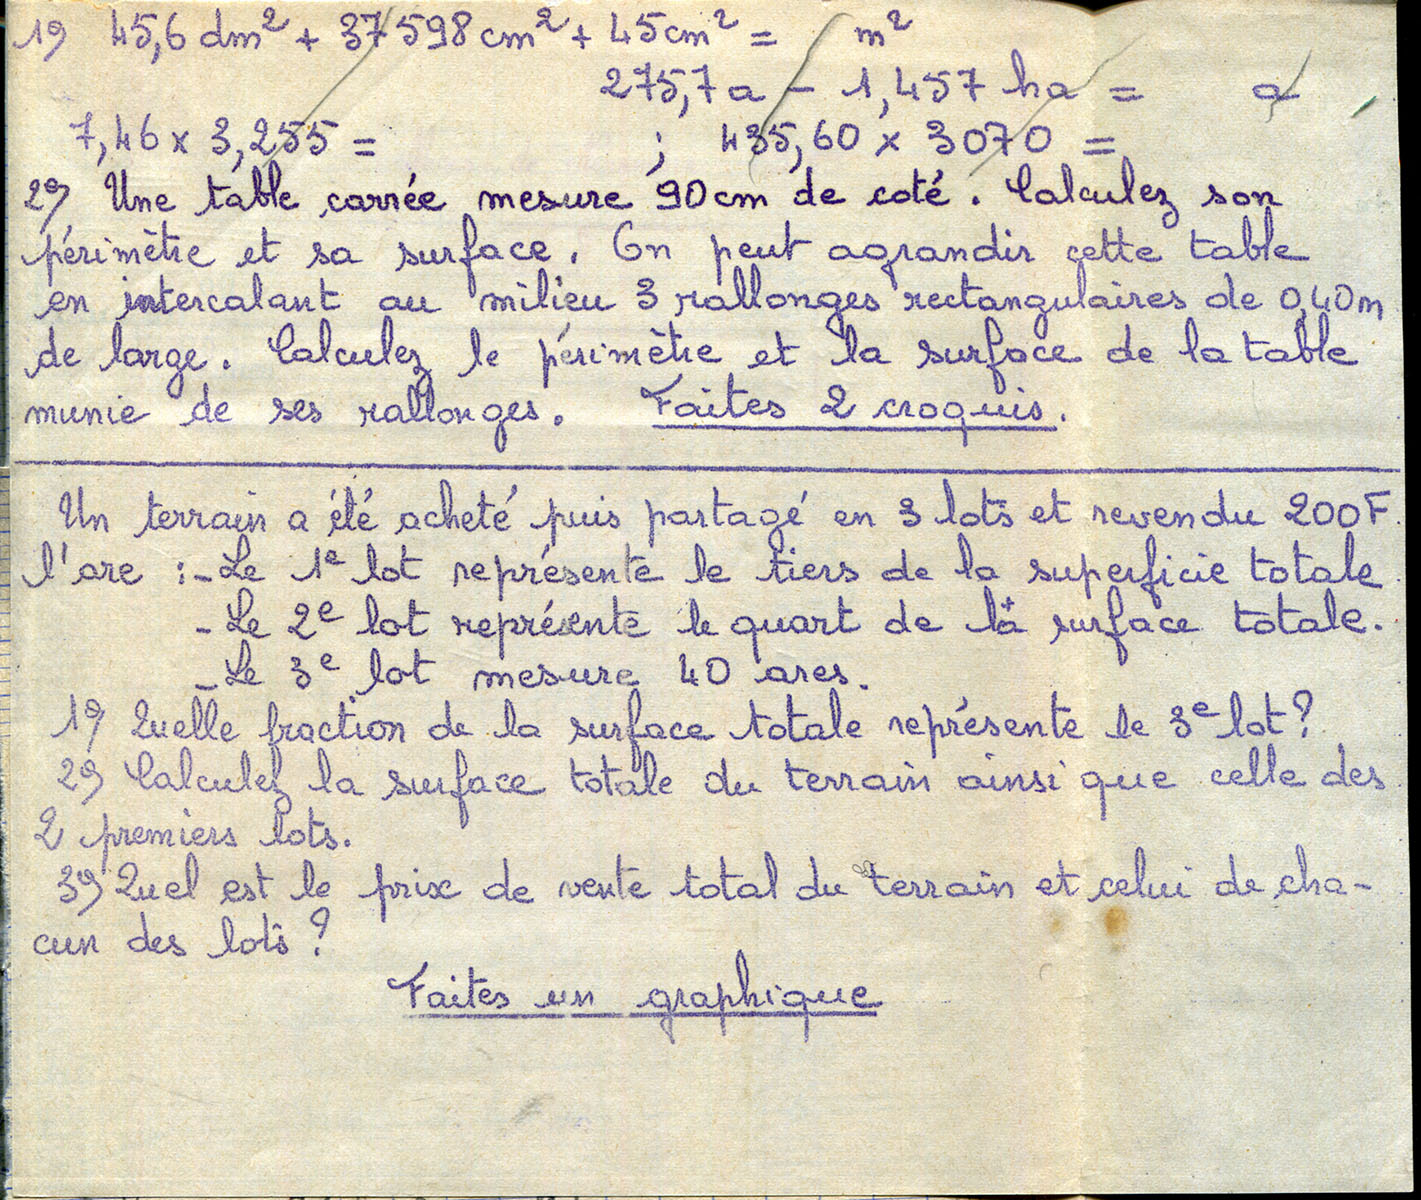 1º) 45,6 dm² + 37598 cm² + 45 cm² = m²
275,7 a - 1,457 ha = a
7,46 x 3,255 = ; 435,60 x 3070 =
2º) Une table carrée mesure 90 cm de coté. Calculez son
périmètre et sa surface. On peut agrandir cette table
en intercalant au milieu 3 rallonges rectangulaires de 0,40 m
de large. Calculez le périmètre et la surface de la table
munie de ses rallonges. Faites 2 croquis.
Un terrain a été acheté puis partagé en 3 lots et revendu 200F
l'are : - Le 1e lot représente le tiers de la superficie totale
- Le 2e lot représente le quart de la surface totale.
- Le 3e lot mesure 40 ares.
1º) Quelle fraction de la surface totale représente le 3e lot ?
2º) Calculez la surface totale du terrain ainsi que celle des
2 premiers lots.
3º) Quel est le prix de vente total du terrain et celui de cha-
cun des lots ?
Faites un graphique